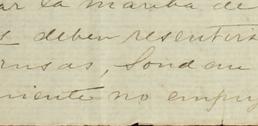 ar la marcha de
deben resentirs
rusas, Sond au
niente no empuj